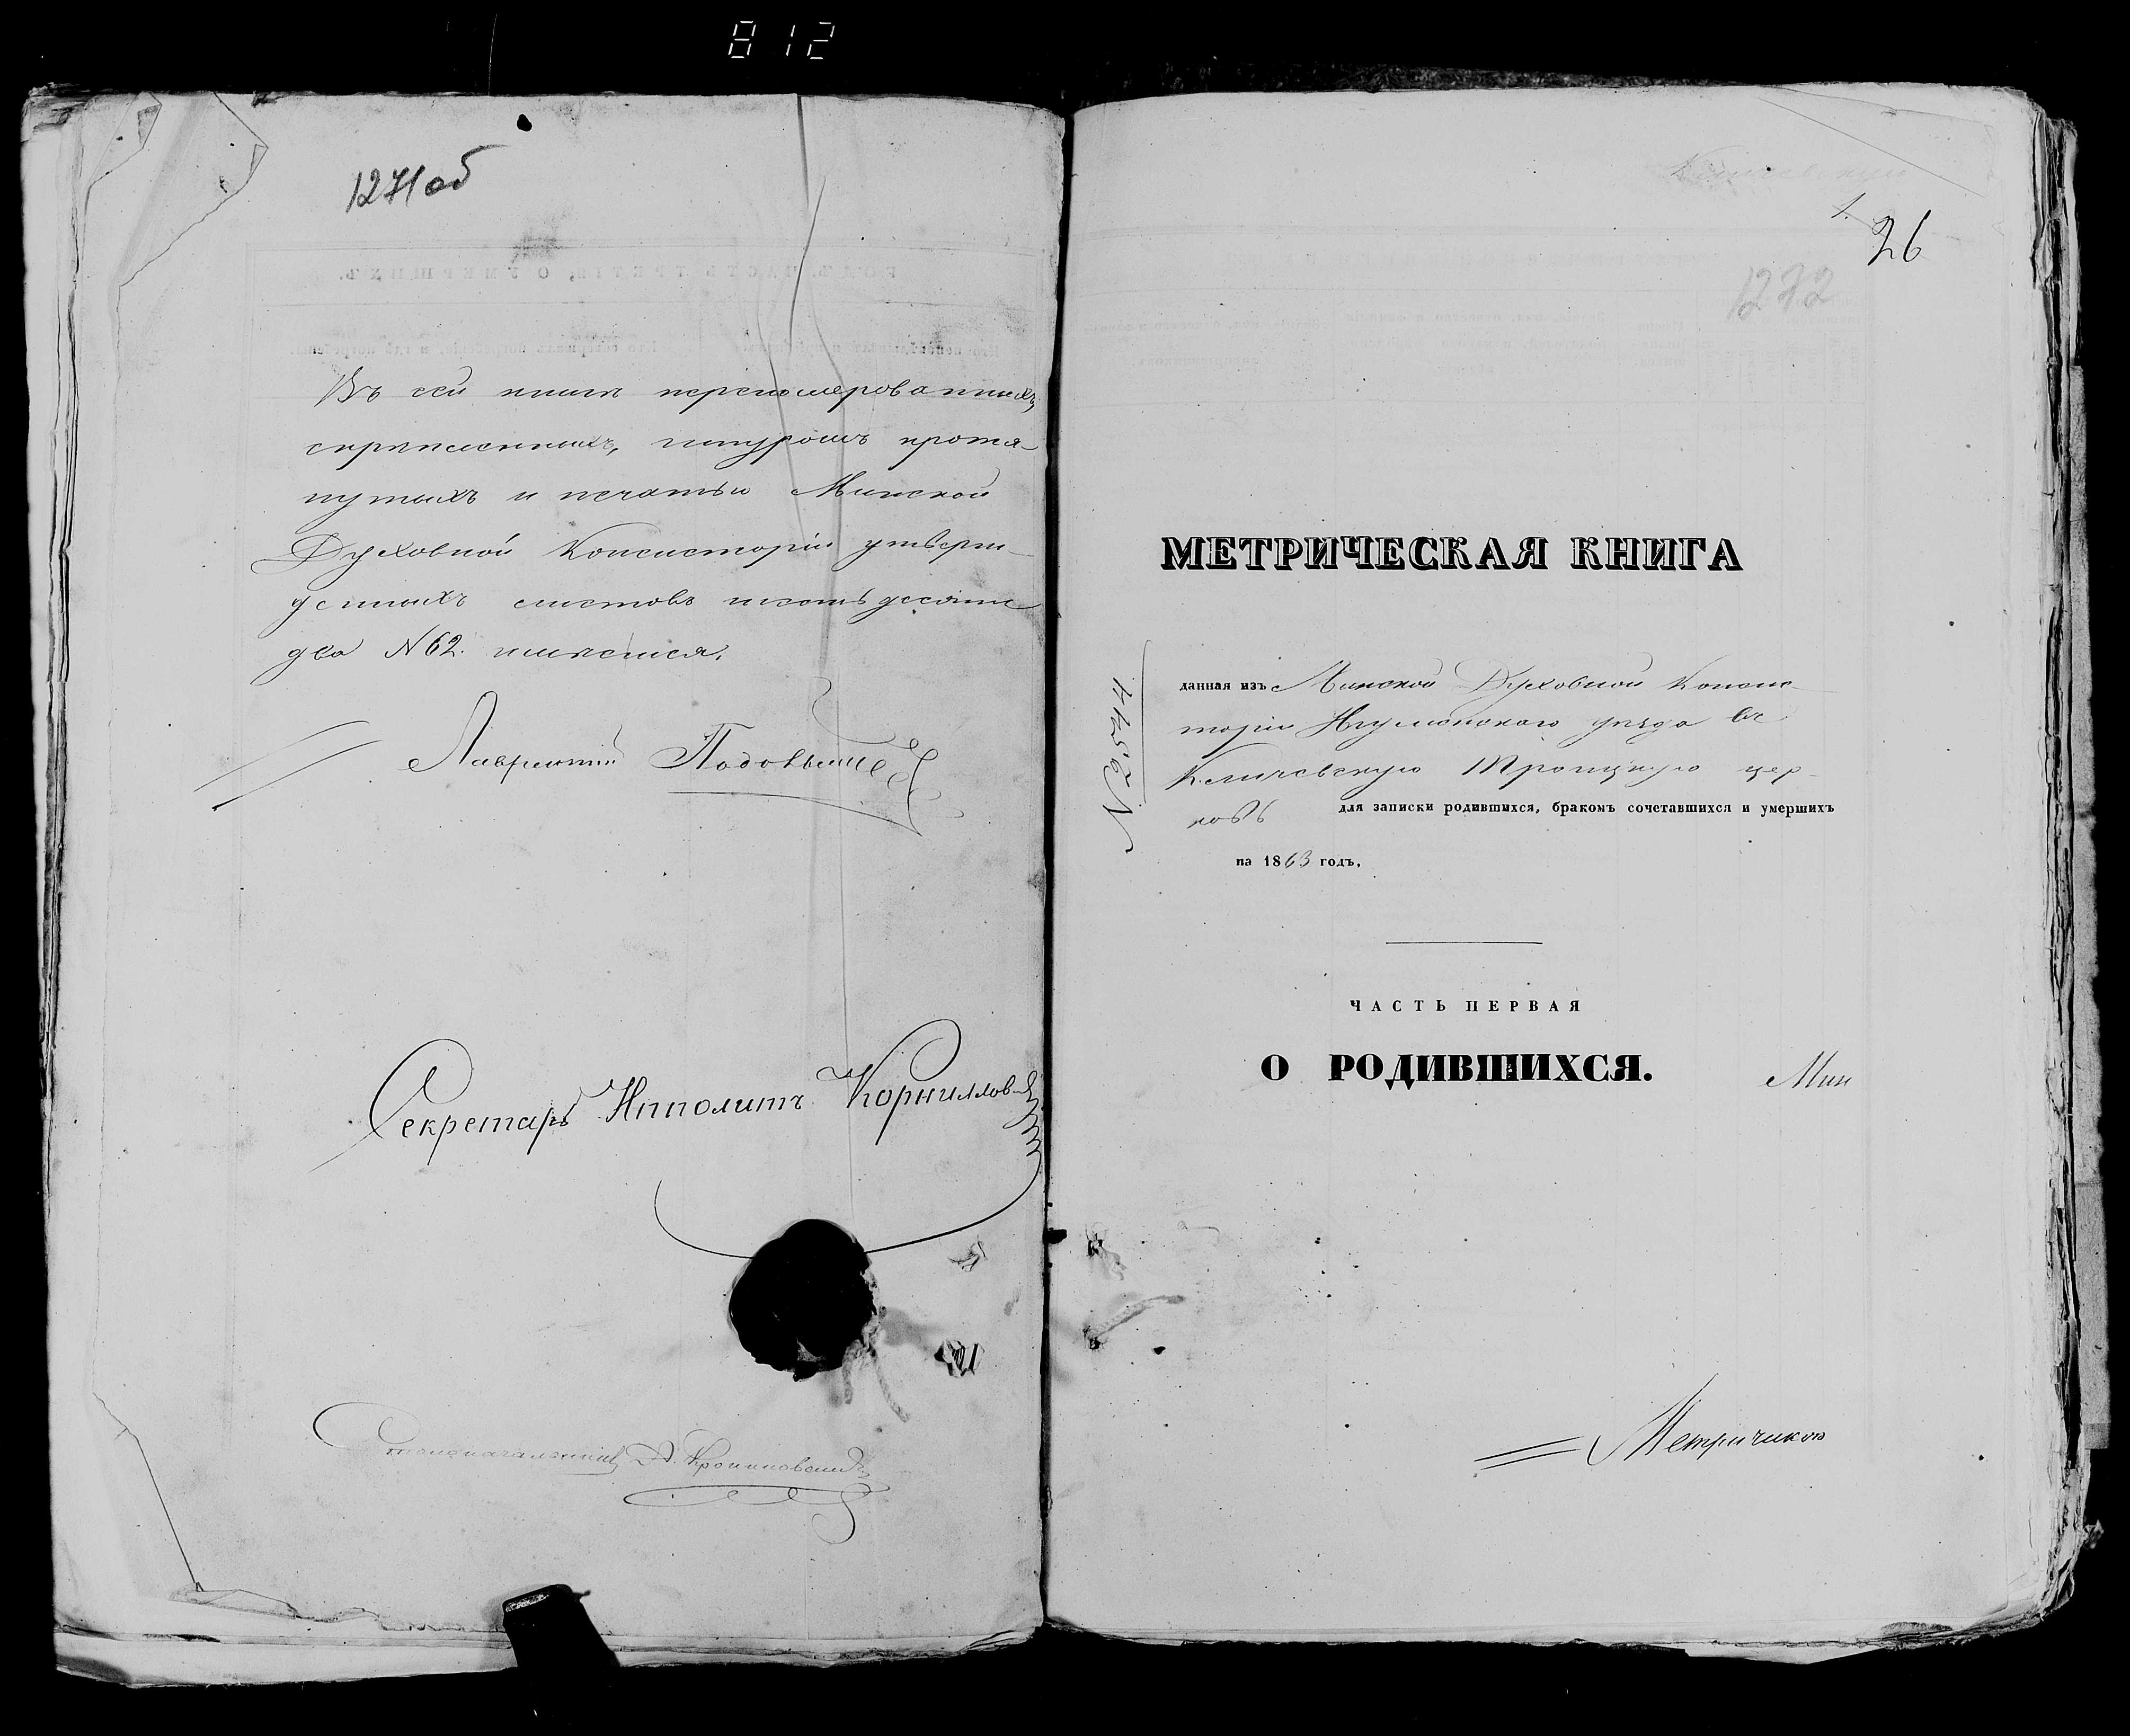 812
1271об
Въ сей книгѣ перенумерованныхъ,
скрѣпленныхъ, шнуромъ протя-
нутыхъ и печатью Минской
Духовной Консисторіи утверж-
денныхъ листовъ шестьдесятъ
два №62. имѣется.
Лаврентій
Секретарь Ипполитъ Корниллов
Столоначальникъ
1.
26
1272
МЕТРИЧЕСКАЯ КНИГА
№ 2574
данная изъ Минской Духовной Консис-
торіи Игуменскаго уѣзда въ
Кличевскую Троицкую цер-
ковь для записки родившихся, бракомъ сочетавшихся и умершихъ
на 1863 годъ.
ЧАСТЬ ПЕРВАЯ
О РОДИВШИХСЯ.
Мин